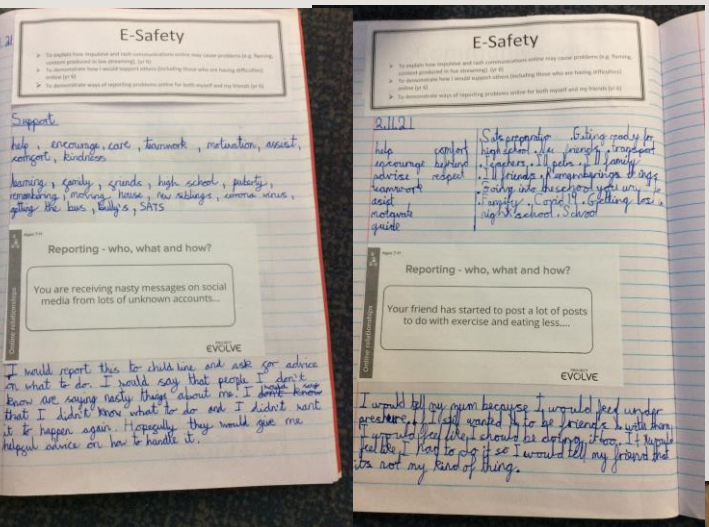 E-Safety
To explain how impulsive and rash communications online may cause problems (e.g. flaming,
content produced in live streaming). (yr 6)
To demonstrate how I would support others (including those who are having difficulties)
online (yr 6)
To demonstrate ways of reporting problems online for both myself and my friends (yr 6)
Support
help, encourage, care, teamwork, motivation, assist,
comfort, kindness
learning, family, friends, high school, puberty,
remembering, moving house, new siblings, corona virus,
getting the bus, bully's, SATS
Ages 7-11
Reporting - who, what and how?
You are receiving nasty messages on social
media from lots of unknown accounts...
Online relationships
PROJECT
EVOLVE
I would report this to child line and ask for advice
on what to do. I would say that people I don't
know are saying nasty things about me. I
that I didn't know what to do and I didn't want
it to happen again. Hopefully they would give me
helpful advice on how to handle it.
E-Safety
To explain how impulsive and rash communications online may cause problems (e.g. flaming,
content produced in live streaming). (yr 6)
To demonstrate how I would support others (including those who are having difficulties)
online (yr 6)
To demonstrate ways of reporting problems online for both myself and my friends (yr 6)
2.11.21
help comfort
encourage
advise respect
teamwork
asist
motavate
guide
Sats . Getting ready for
high school . friends . transport
Teachers . Ill pets . Ill family
. Ill friends .
. Going into the school you
. Covid 19 . Getting
school . School
Ages 7-11
Reporting - who, what and how?
Your friend has started to post a lot of posts
to do with exercise and eating less....
Online relationships
PROJECT
EVOLVE
I would tell my mum because I would feel under
preshure. If I still wanted to be friends with them
I would feel like I should be doing it too. It would
feel like I had to do it so I would tell my friend that
its not my kind of thing.